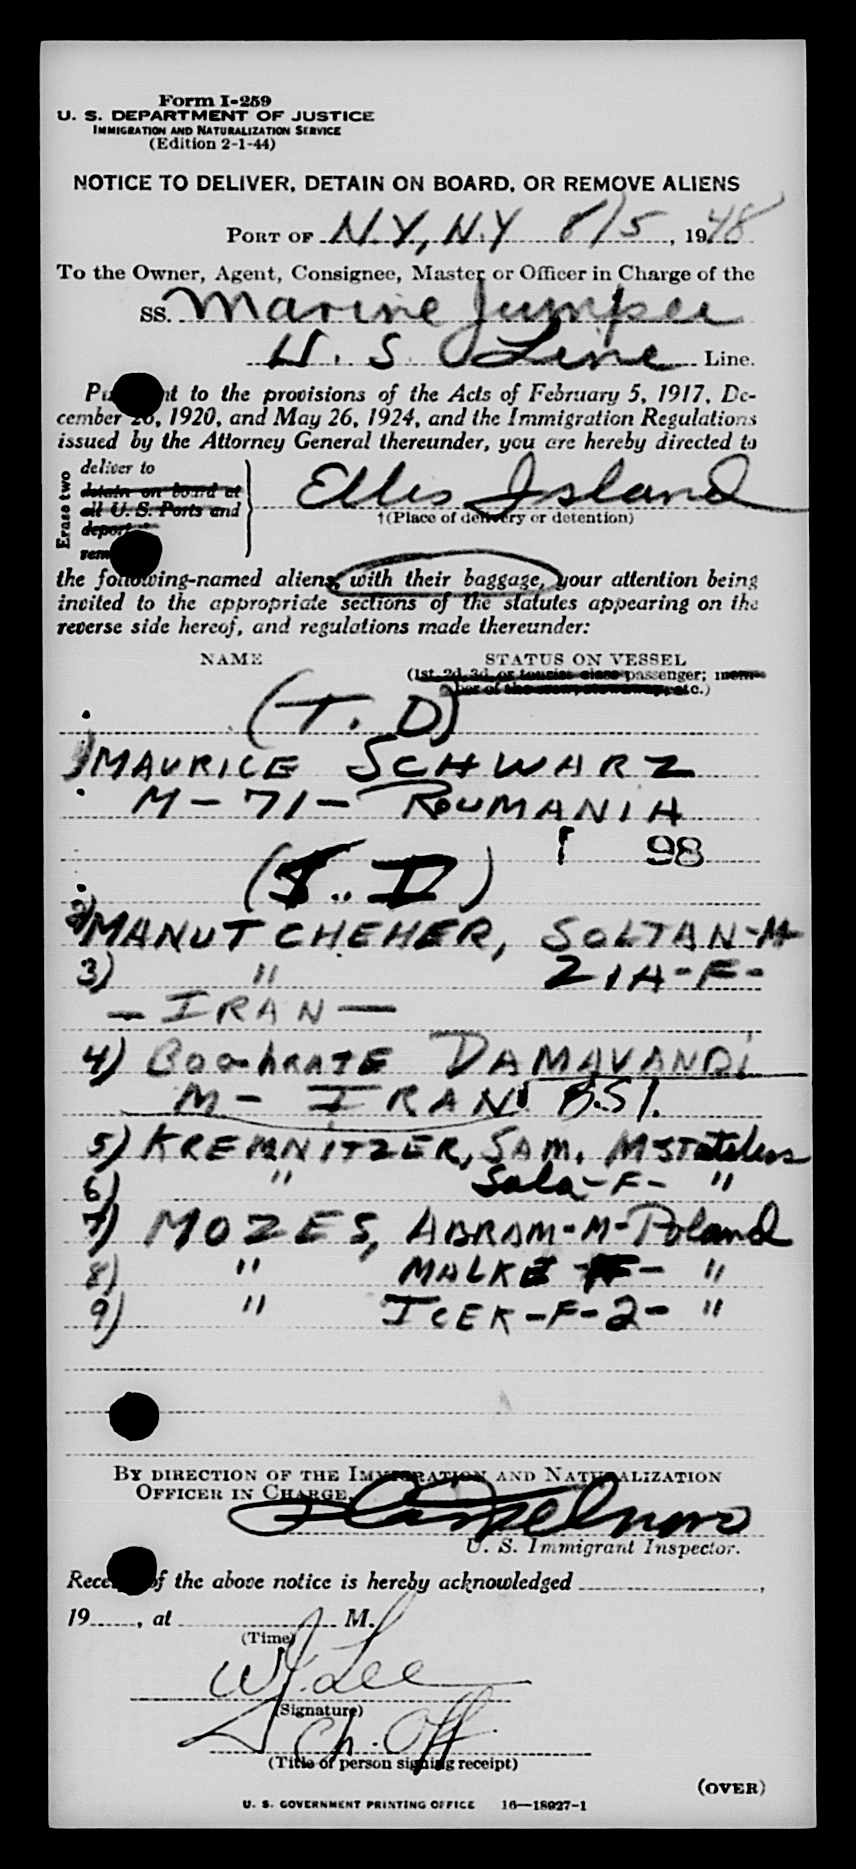 Form I-259
U. S. DEPARTMENT OF JUSTICE
IMMIGRATION AND NATURALIZATION SERVICE
(Edition 2-1-44)
NOTICE TO DELIVER, DETAIN ON BOARD, OR REMOVE ALIENS
PORT OF N.Y., N.Y 8/5, 1948
To the Owner, Agent, Consignee, Master or Officer in Charge of the
SS. Marine Jumper
U. S. Line Line.
to the provisions of the Acts of February 5, 1917, De-
cember 26, 1920, and May 26, 1924, and the Immigration Regulations
issued by the Attorney General thereunder, you are hereby directed to
Erase two
deliver to
detain on board at
all U. S. Ports and
deport
Ellis Island
†(Place of delivery or detention)
the following-named aliens, with their baggage, your attention being
invited to the appropriate sections of the statutes appearing on the
reverse side hereof, and regulations made thereunder:
NAME STATUS ON VESSEL
(1st, 2d, 3d, or tourist class passenger; mem-
ber of the crew, stowaway, etc.)
(T. D)
1) MAURICE SCHWARZ
M - 71 - ROUMANIA
98
2) MANUTCHEHER, SOLTAN-M
3) " ZIA-F-
- IRAN -
4) DAMAVANDI
M - IRAN B.S.I.
5) KREMNITZER, SAM. M Stateless
6) " Sala-F- "
7) MOZES, ABRAM-M-Poland
8) " MALKE -F- "
9) " ICEK-F-2- "
BY DIRECTION OF THE IMMIGRATION AND NATURALIZATION
OFFICER IN CHARGE.
U. S. Immigrant Inspector.
of the above notice is hereby acknowledged ,
19 , at M.
(Time)
W. J. Lee
(Signature)
Ch. Off
(Title of person signing receipt)
(OVER)
U. S. GOVERNMENT PRINTING OFFICE 16—18927-1